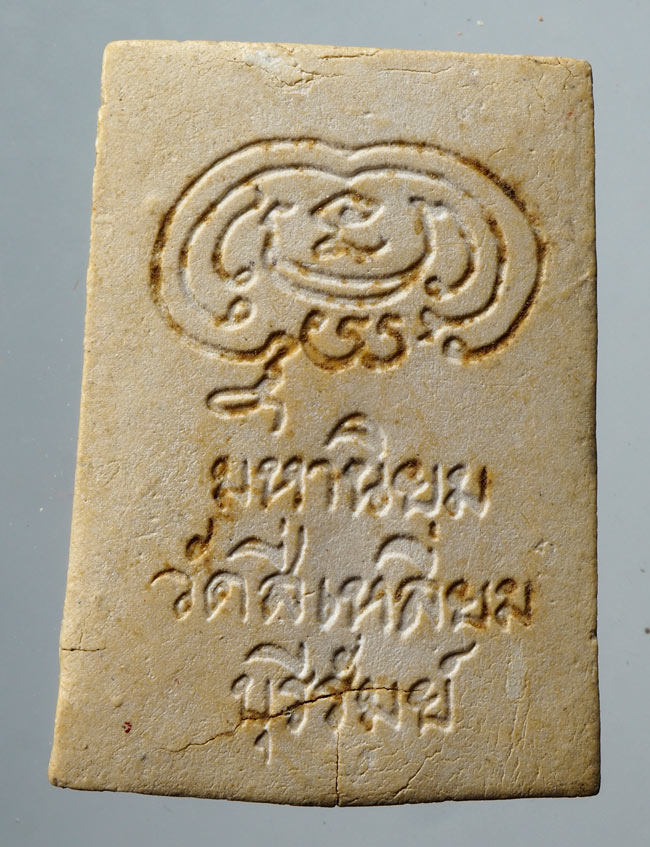 มหานิยม
วัดสี่เหลี่ยม
บุรีรัมย์